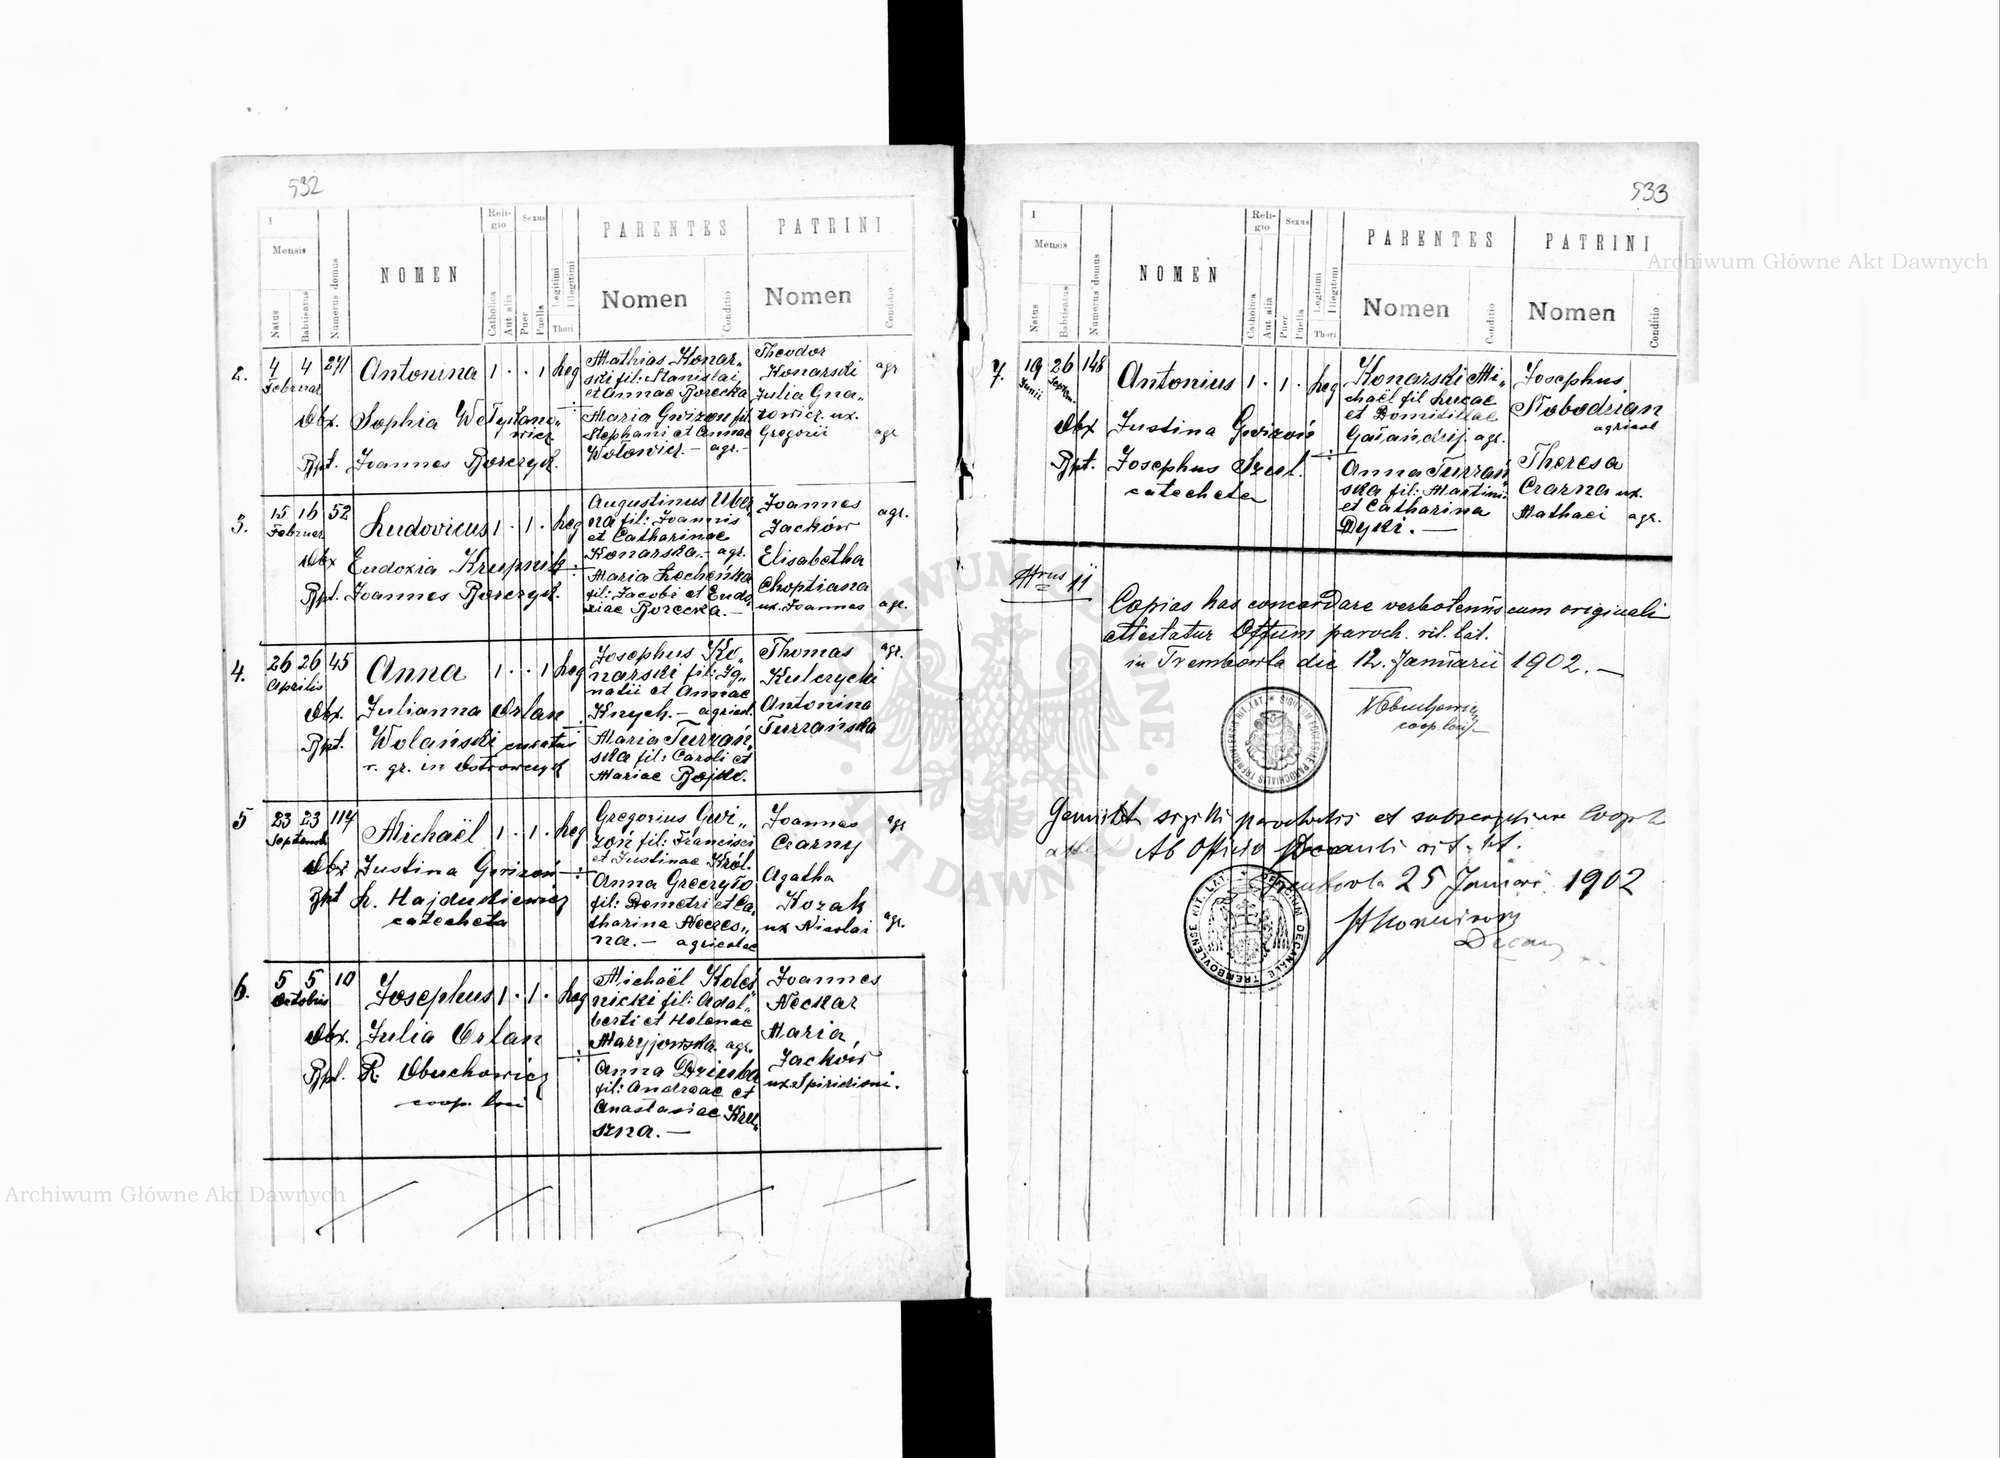 532
1
Mensis
Natus
Babtisatus
Numerus domus
NOMEN
Religio
Catholica
Aut alia
Sexus
Puer
Puella
Legitimi
Illegitimi
Thori
PARENTES
Nomen
Conditio
PATRINI
Nomen
Conditio
2. 4 4 241 Antonina 1 · · 1 leg
Februar
Obx. Sophia
Bpt. Joannes Borczyk.
Mathias Konar„
ski fil: Stanislai
et Annae Borecka
Maria Gwizon fil
Stephani et Annae
Wołowicz. — agr. —
Theodor
Konarski agr
Julia Gna„
towicz. ux.
Gregorii agr
3. 15 16 52 Ludovicus 1 · 1 · leg
Februar
Obx Eudoxia Krupnik
Bpt. Joannes Borczyk.
Augustinus
na fil: Joannis
et Catharinae
Konarska. — agr.
Maria Lecheńka
fil: Jacobi et Eudo
xiae Borecka. —
Joannes agr.
Jacków
Elisabetha
Choptiana
ux. Joannes agr.
4. 26 26 45 Anna 1 · · 1 leg
Aprilis
Obx. Julianna Orlan
Bpt. Wolański curatus
r. gr. in
Josephus Ko„
narski fil: Ig„
natii et Annae
Knych. — agricol.
Maria Turzań„
ska fil: Caroli et
Mariae Bojko.
Thomas agr.
Kulczycki
Antonina
Turzańska
5 23 23 114 Michaël 1 · 1 · leg
Septemb
Obx Justina Gwizoń
Bpt L. Hajdukiewicz
catecheta
Gregorius Gwi„
zoń fil: Francisci
et Justinae Król.
Anna Greczyło
fil: Demetri et Ca„
tharina Neczes„
na. — agricolae
Joannes agr
Czarny
Agatha
Kozak
ux Nicolai agr.
6. 5 5 10 Josephus 1 · 1 · leg
Octobris
Obx. Julia Orlan
Bpt. R. Obuchowicz
coop. loci
Michaël Koleś„
nicki fil: Adal„
berti et Helenae
Maryjowska. agr.
Anna Dziuba
fil: Andreae et
Anastasiae Kru„
szna. —
Joannes
Neckar
Maria
Jacków
ux Spiridioni.
533
1
Mensis
Natus
Babtisatus
Numerus domus
NOMEN
Religio
Catholica
Aut alia
Sexus
Puer
Puella
Legitimi
Illegitimi
Thori
PARENTES
Nomen
Conditio
PATRINI
Nomen
Conditio
7. 19 26 148 Antonius 1 · 1 · leg
Junii Septem.
Obx Justina Gwizoń
Bpt. Josephus Szul.
catecheta
Konarski Mi„
chaël fil Lucae
et Domitillae
agr.
Anna Turzań„
ska fil: Martini
et Catharina
Dycki. —
Josephus
Słobodzian
agricol
Theresa
Czarna ux.
Mathaei agr.
Nrus 11
Copias has concordare verbotenus cum originali
attestatur Offium paroch. rit. lat.
in Trembowla die 12. Januarii 1902. —
Obuchowicz
coop. loci
sigilli parochialis et subscriptionem Coopti
Ab Officio Decanali rit. lat.
Trembowla 25 Januari 1902
Decan
Archiwum Główne Akt Dawnych
Archiwum Główne Akt Dawnych
ARCHIWUM GŁÓWNE
AKT DAWNYCH